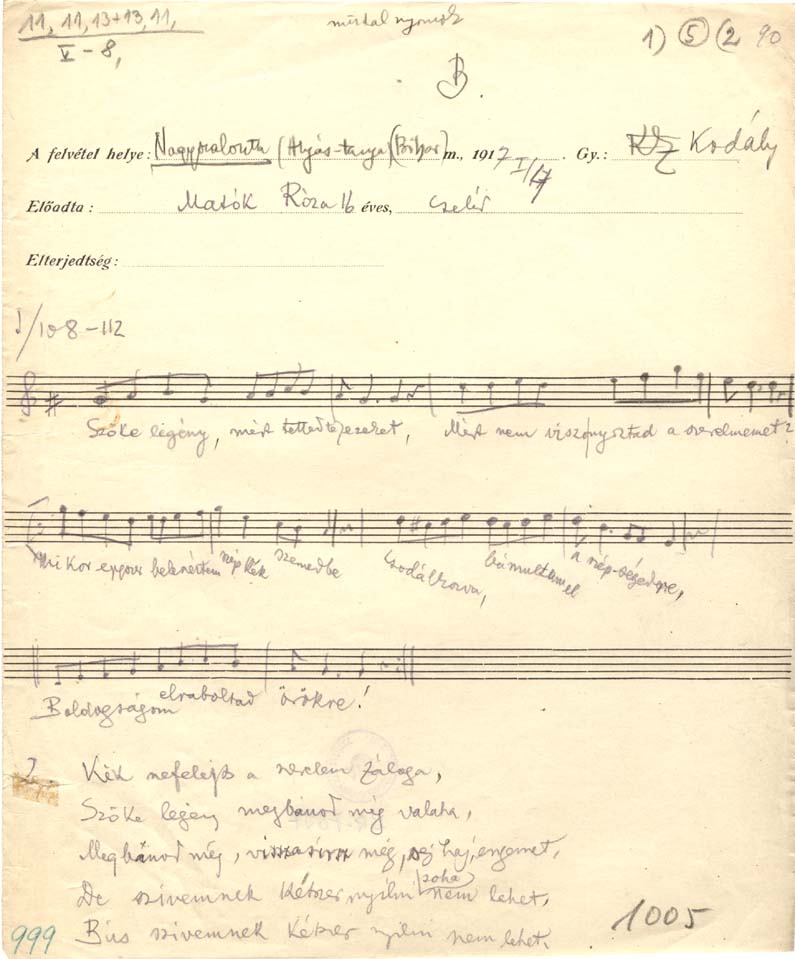 11, 11, 13+13, 11,
V - 8,
műdal nyomok
1) 5 (2 90
B.
A felvétel helye: Nagyszalonta (Bihar) m., 1917 I/17. Gy.: Kodály
Előadta: Matók Róza 16 éves, cseléd
Elterjedtség:
108-112
Szőke legény, mért tetted te ezeket, Mért nem viszonyoztad a szerelmemet?
Mikor egyszer belenéztem szép kék szemedbe
csodálkozva, bámultam el a szép-ségedre,
Boldogságom elraboltad örökre!
2. Kék nefelejts a szerelem záloga,
Szőke legény megbánod még valaha,
Megbánod még, visszasírsz még, sej haj, engemet,
De szivemnek kétszer nyilni soha nem lehet,
Bús szivemnek kétszer nyilni nem lehet.
999
1005